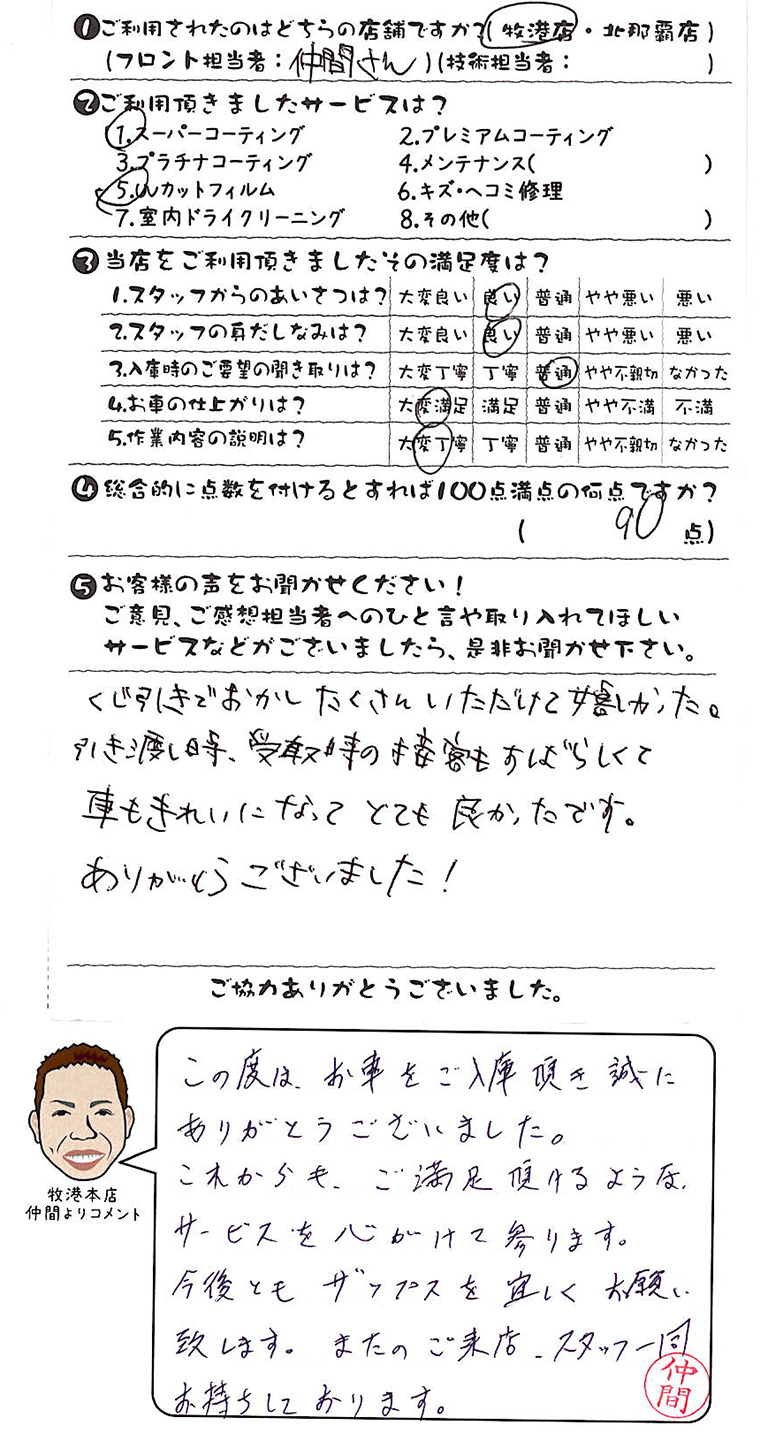 ❶ご利用されたのはどちらの店舗ですか?(牧港店・北那覇店)
(フロント担当者:仲間さん)(技術担当者: )
❷ご利用頂きましたサービスは?
1.スーパーコーティング 2.プレミアムコーティング
3.プラチナコーティング 4.メンテナンス( )
5.UVカットフィルム 6.キズ・ヘコミ修理
7.室内ドライクリーニング 8.その他( )
❸当店をご利用頂きましたその満足度は?
1.スタッフからのあいさつは? 大変良い 良い 普通 やや悪い 悪い
2.スタッフの身だしなみは? 大変良い 良い 普通 やや悪い 悪い
3.入庫時のご要望の聞き取りは? 大変丁寧 丁寧 普通 やや不親切 なかった
4.お車の仕上がりは? 大変満足 満足 普通 やや不満 不満
5.作業内容の説明は? 大変丁寧 丁寧 普通 やや不親切 なかった
❹総合的に点数を付けるとすれば100点満点の何点ですか?
( 90 点)
❺お客様の声をお聞かせください!
ご意見、ご感想担当者へのひと言や取り入れてほしい
サービスなどがございましたら、是非お聞かせ下さい。
くじ引きでおかし たくさん いただけて嬉しかった。
引き渡し時、受取時の接客もすばらしくて
車もきれいになって とても 良かったです。
ありがとうございました!
ご協力ありがとうございました。
この度は、お車をご入庫頂き誠に
ありがとうございました。
これからも、ご満足頂けるような、
サービスを心がけて参ります。
牧港本店
仲間よりコメント
今後とも ザップスを宜しくお願い
致します。またのご来店、スタッフ一同
お待ちしております。
仲間